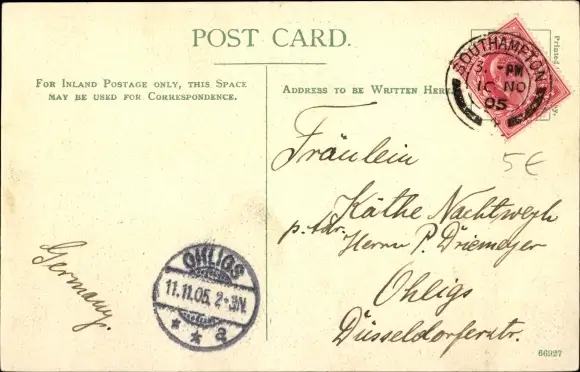 POST CARD.
FOR INLAND POSTAGE ONLY, THIS SPACE
MAY BE USED FOR CORRESPONDENCE.
ADDRESS TO BE WRITTEN HERE.
Printed
SOUTHAMPTON
PM
NO
05
5€
Fräulein
Käthe Nachtwegh
p. Adr. Herrn P. Driemeyer
Ohligs
Düsseldorferstr.
Germany.
OHLIGS
11.11.05. 2-3N.
* * a
66927